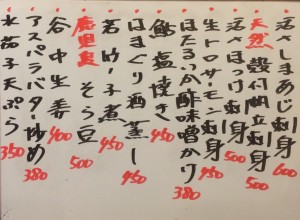 活〆しまあじ刺身 600
天然 殻付帆立刺身 500
活〆ほっけ刺身 500
生トロサーモン刺身 450
ほたるいか酢味噌かけ 380
鮎塩焼き 450
はまぐり酒蒸し 450
若竹子煮 450
鹿児島 そら豆 500
谷中生姜 400
アスパラバター炒め 380
水茄子天ぷら 350